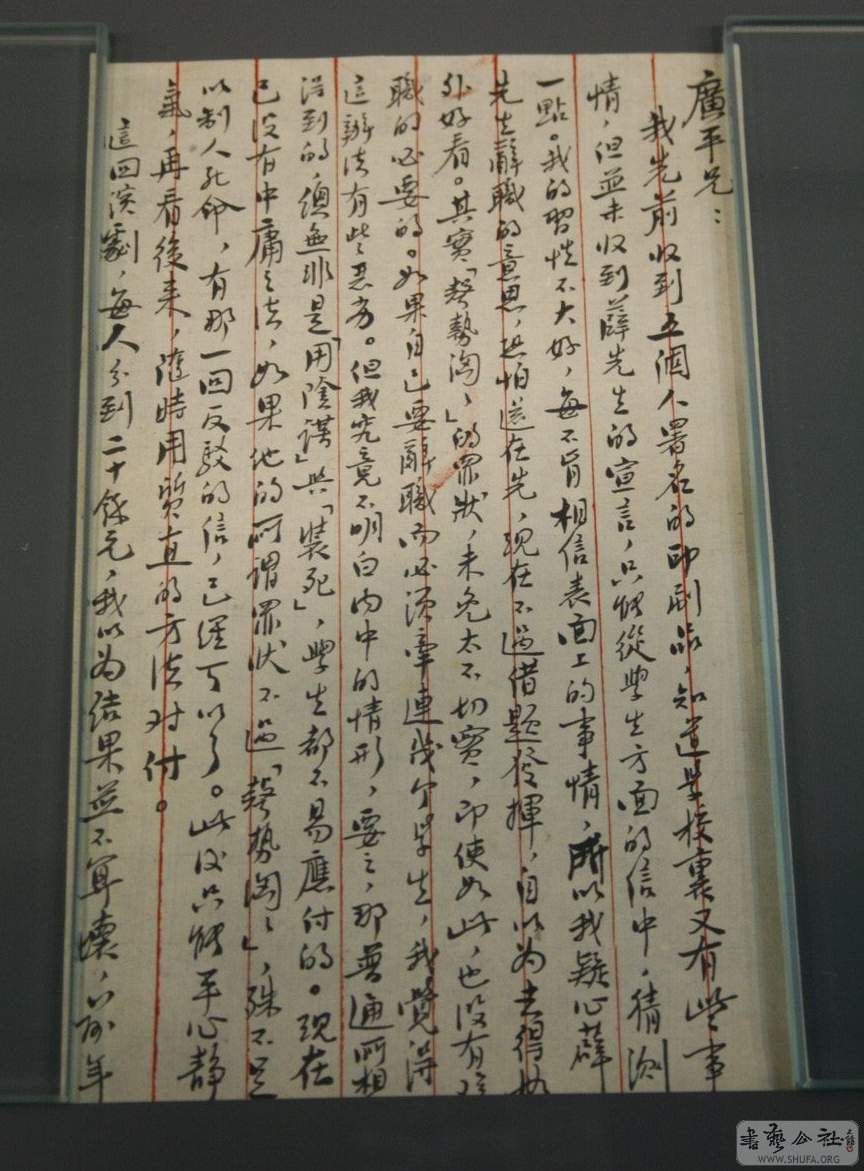 廣平兄：
我先前收到五個人署名的印刷品，知道學校裏又有些事
情，但並未收到薛先生的宣言，只能從學生方面的信中，猜測
一點。我的習性不大好，每不肯相信表面上的事情，所以我疑心薛
先生辭職的意思，恐怕還在先，現在不過借題發揮，自以為去得格
外好看。其實「聲勢洶〻」的罪狀，未免太不切實，即使如此，也沒有辭
職的必要的。如果自己要辭職而必須牽連幾個學生，我覺得
這辦法有些惡劣。但我究竟不明白內中的情形，要之，那普通所想
得到的，總無非是「用陰謀」與「裝死」，學生都不易應付的。現在
已沒有中庸之法，如果他的所謂罪狀不過「聲勢洶〻」，殊不足
以制人死命，有那一回反駁的信，已經可以了。此後只能平心靜
氣，再看後來，隨時用質直的方法对付。
這回演劇，每人分到二十餘元，我以為結果並不算壞，前年
書藝公社
WWW.SHUFA.ORG